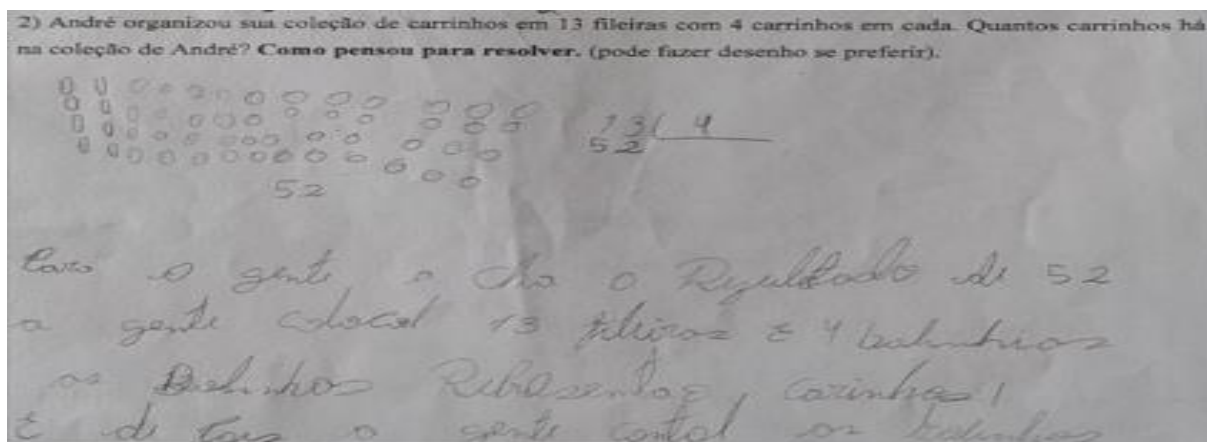 2) André organizou sua coleção de carrinhos em 13 fileiras com 4 carrinhos em cada. Quantos carrinhos há
na coleção de André? Como pensou para resolver. (pode fazer desenho se preferir).
13 4
52
52
o gente o Resultado de 52
a gente colocol 13 fileiras e 4 bolinhias
as Bolinhos Rebresentas, carinhas!
E de o gente contol as bolinhas